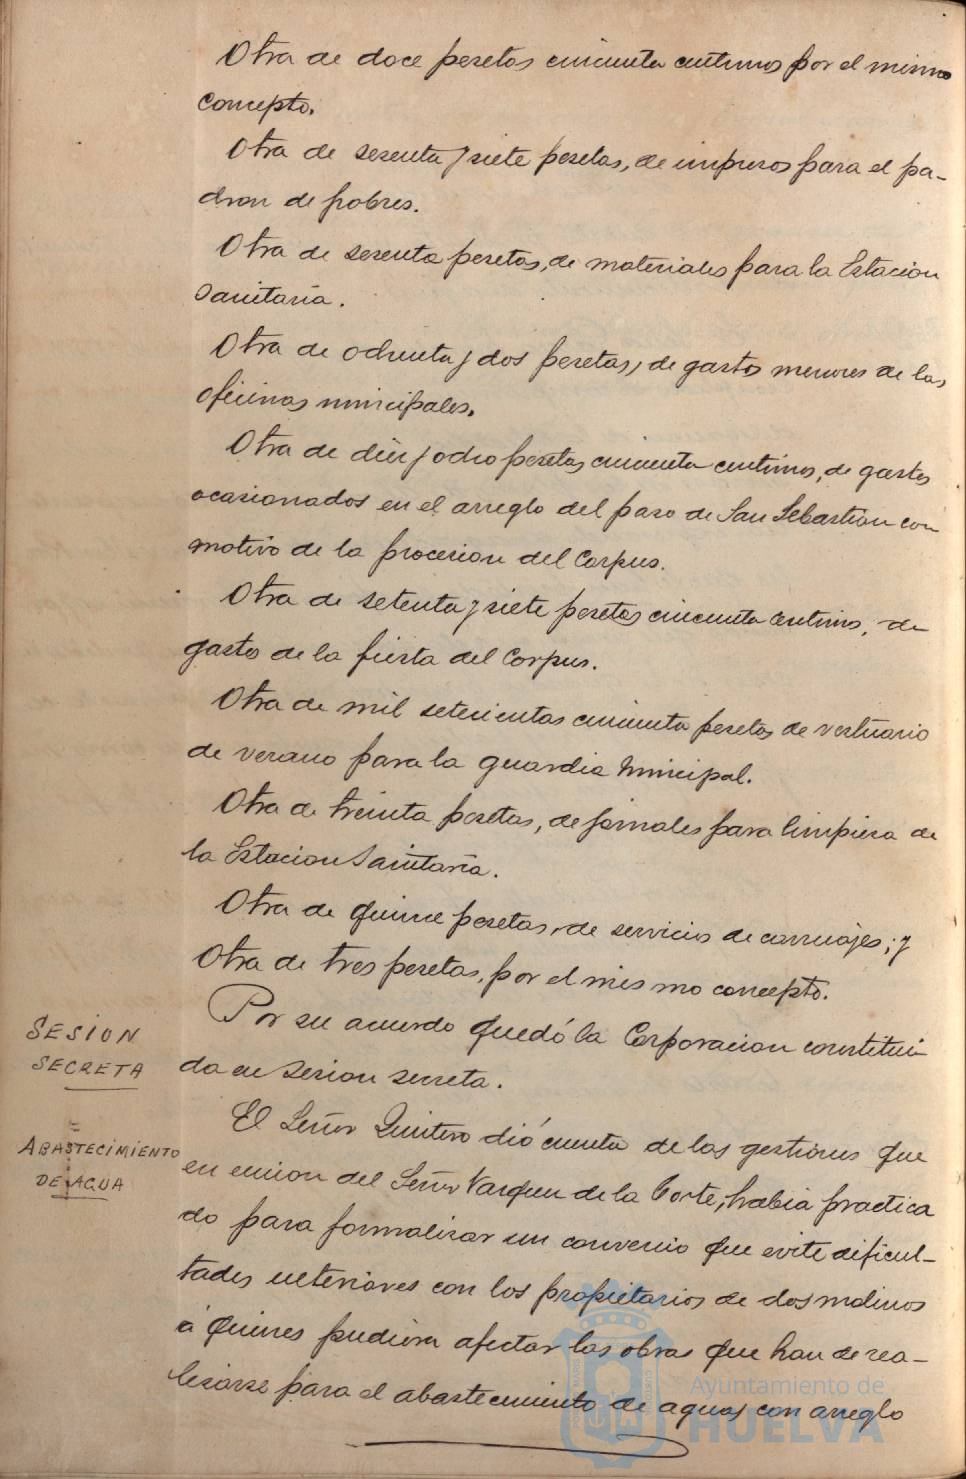 Otra de doce pesetas cincuenta centimos por el mismo
concepto.
Otra de sesenta y siete pesetas, de impresos para el pa-
dron de pobres.
Otra de sesenta pesetas, de materiales para la Estacion
Sanitaria.
Otra de ochenta y dos pesetas, de gastos menores de las
oficinas municipales.
Otra de diez y ocho pesetas cincuenta centimos, de gastos
ocasionados en el arreglo del paso de San Sebastian con
motivo de la procesion del Corpus.
Otra de setenta y siete pesetas cincuenta centimos, de
gastos de la fiesta del Corpus.
Otra de mil setecientas cincuenta pesetas de vestuario
de verano para la guardia municipal.
Otra de treinta pesetas, de jornales para limpieza de
la Estacion Sanitaria.
Otra de quince pesetas, de servicios de carruajes; y
Otra de tres pesetas, por el mismo concepto.
SESION
SECRETA
Por su acuerdo quedó la Corporacion constitui-
da en sesion secreta.
ABASTECIMIENTO
DE AGUA
El Señor Quintero dió cuenta de las gestiones que
en union del Señor Vazquez de la Corte, habia practica
do para formalizar un convenio que evite dificul-
tades ulteriores con los propietarios de dos molinos
á quienes pudiera afectar las obras que han de rea-
lizarse para el abastecimiento de aguas con arreglo
Ayuntamiento de
HUELVA